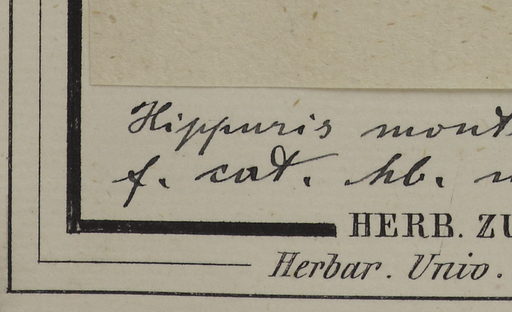 Hippuris mont
f. cat. hb.
HERB. ZU
Herbar. Unio.